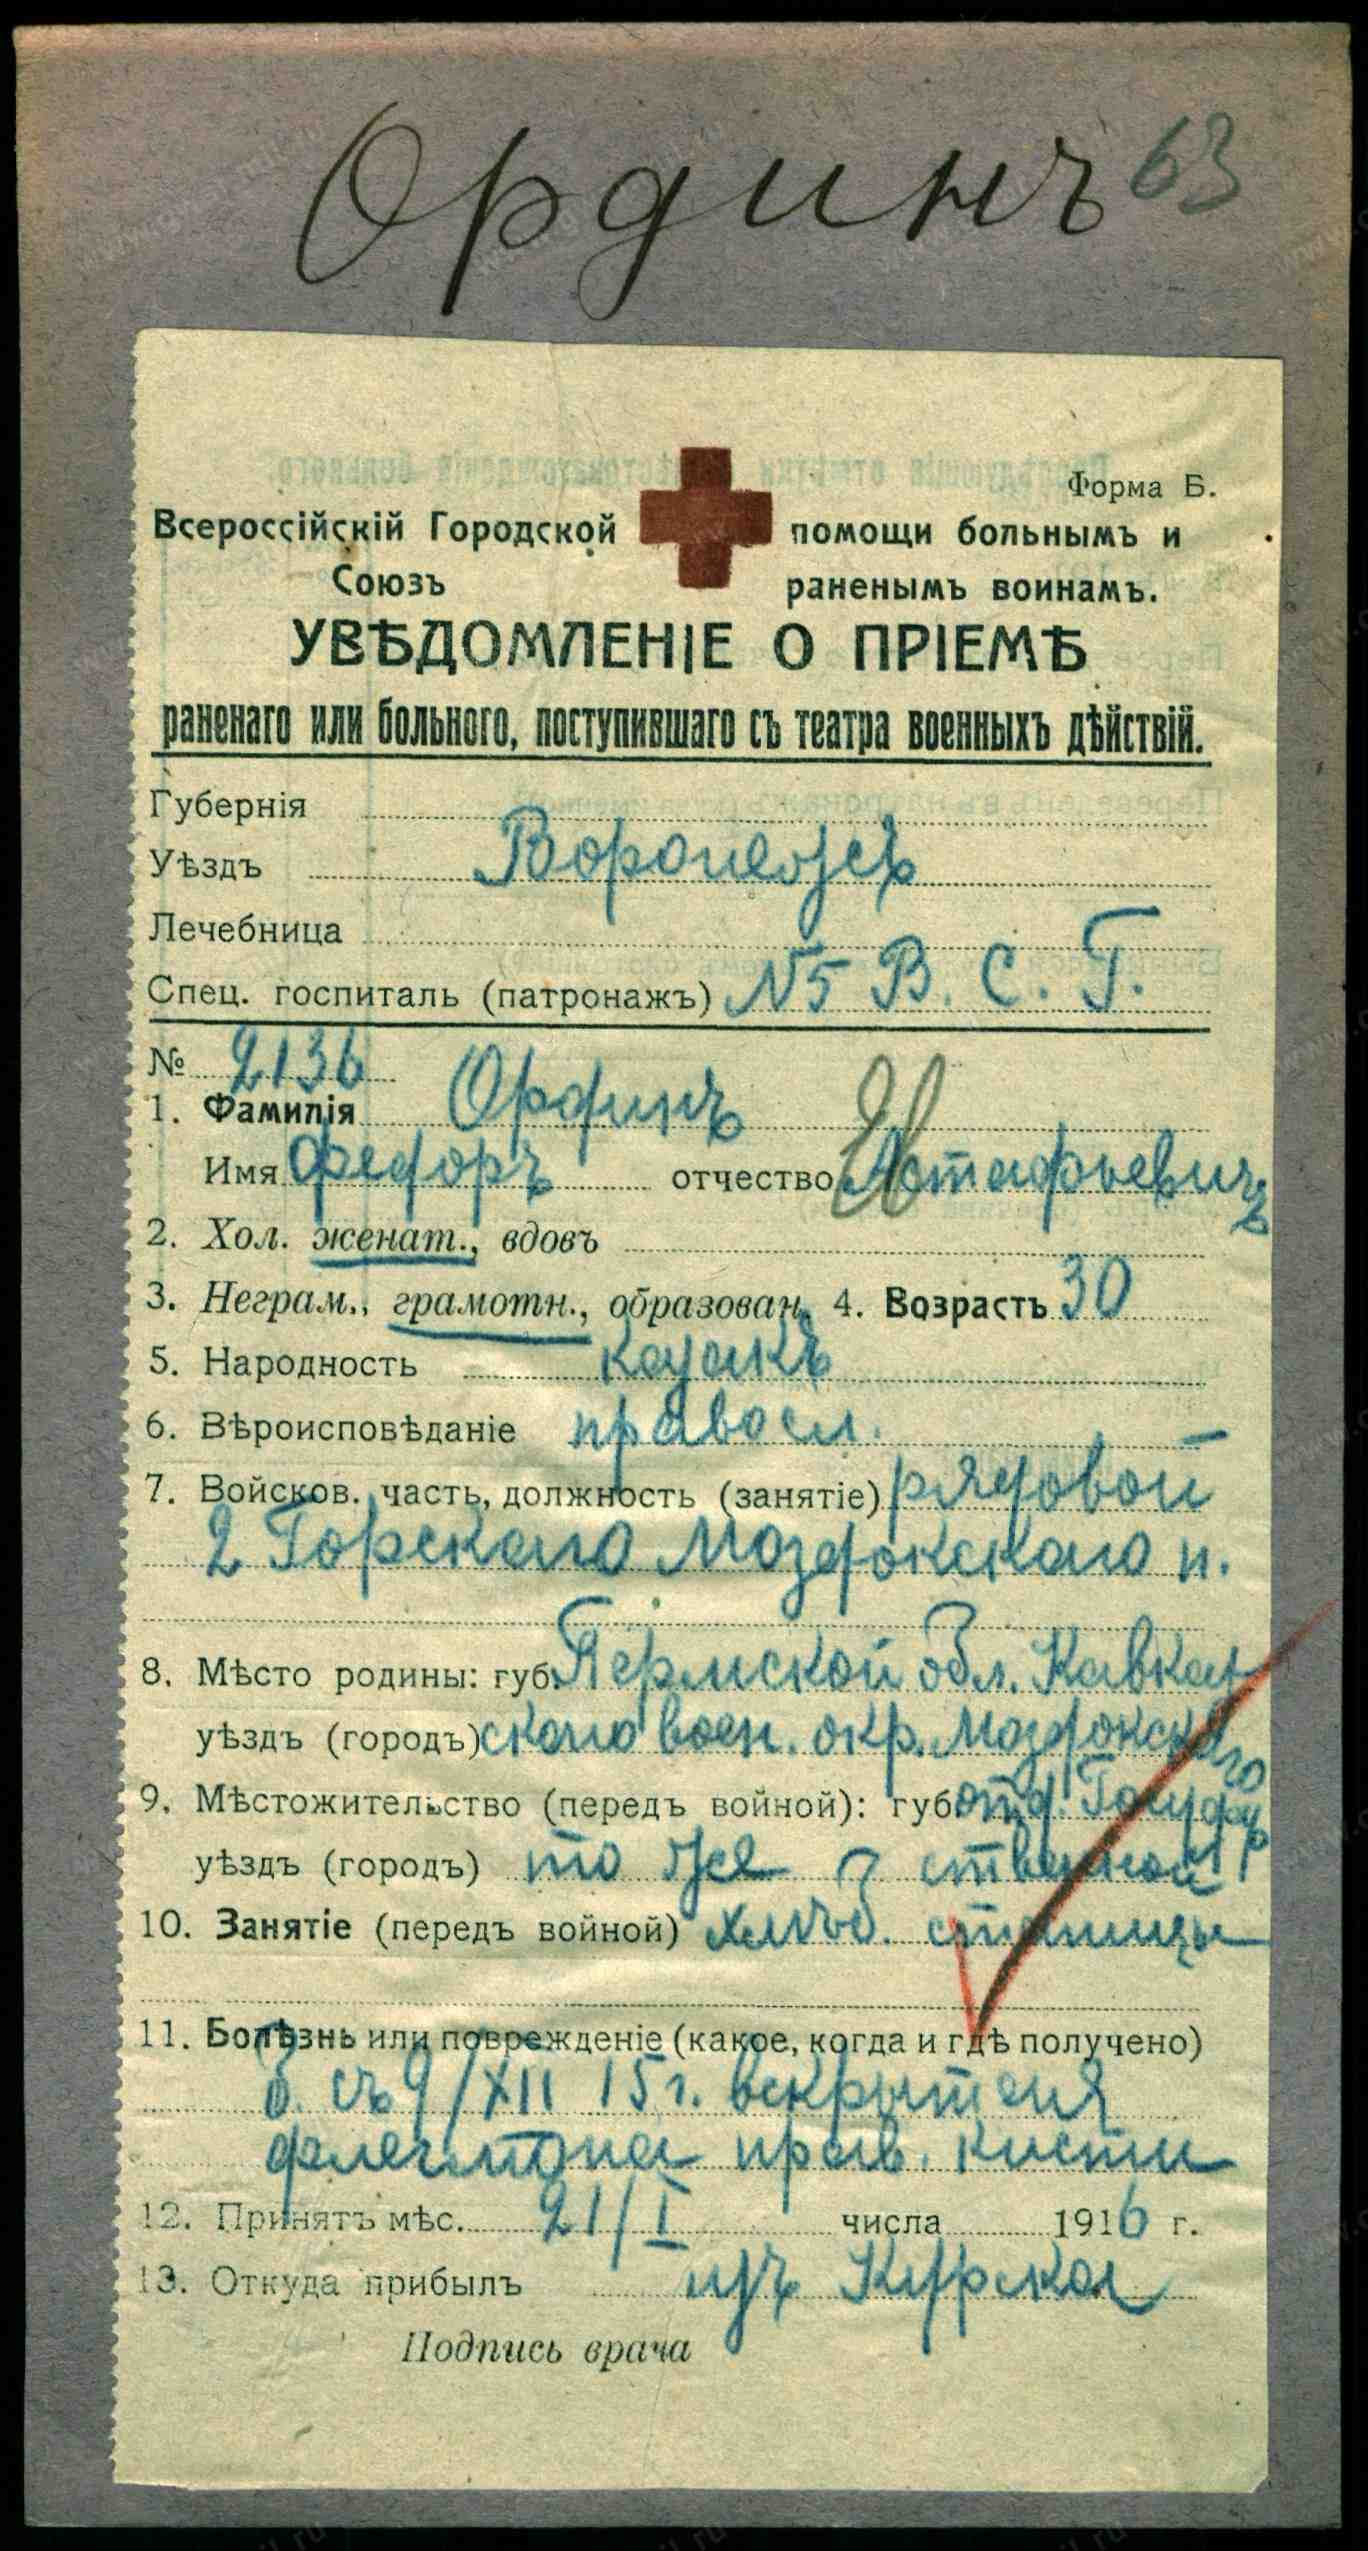 Ординъ 63
Форма Б.
Всероссійскій Городской помощи больнымъ и
Союзъ раненымъ воинамъ.
УВѢДОМЛЕНІЕ О ПРІЕМѢ
раненаго или больного, поступившаго съ театра военныхъ дѣйствій.
Губернія
Уѣздъ Воронежъ
Лечебница
Спец. госпиталь (патронажъ) N5 В. С. Г.
№ 2136
1. Фамилія Ординъ
Имя Федоръ отчество Астафьевичъ
2. Хол. женат., вдовъ
3. Неграм., грамотн., образован. 4. Возрастъ 30
5. Народность казакъ
6. Вѣроисповѣданіе правосл.
7. Войсков. часть, должность (занятіе) рядовой
2 Горскаго Моздокскаго п.
8. Мѣсто родины: губ. Пермской Обл. Кавказ
уѣздъ (городъ) скаго воен. окр. Моздокскаго
9. Мѣстожительство (передъ войной): губ. отд. Государ
уѣздъ (городъ) то же ственной
10. Занятіе (передъ войной) хлѣб. станицы
11. Болѣзнь или поврежденіе (какое, когда и гдѣ получено)
б. съ 9/XII 15 г. вскрытая
флегмона прав. кисти
12. Принятъ мѣс. 21/I числа 1916 г.
13. Откуда прибылъ изъ Курска
Подпись врача